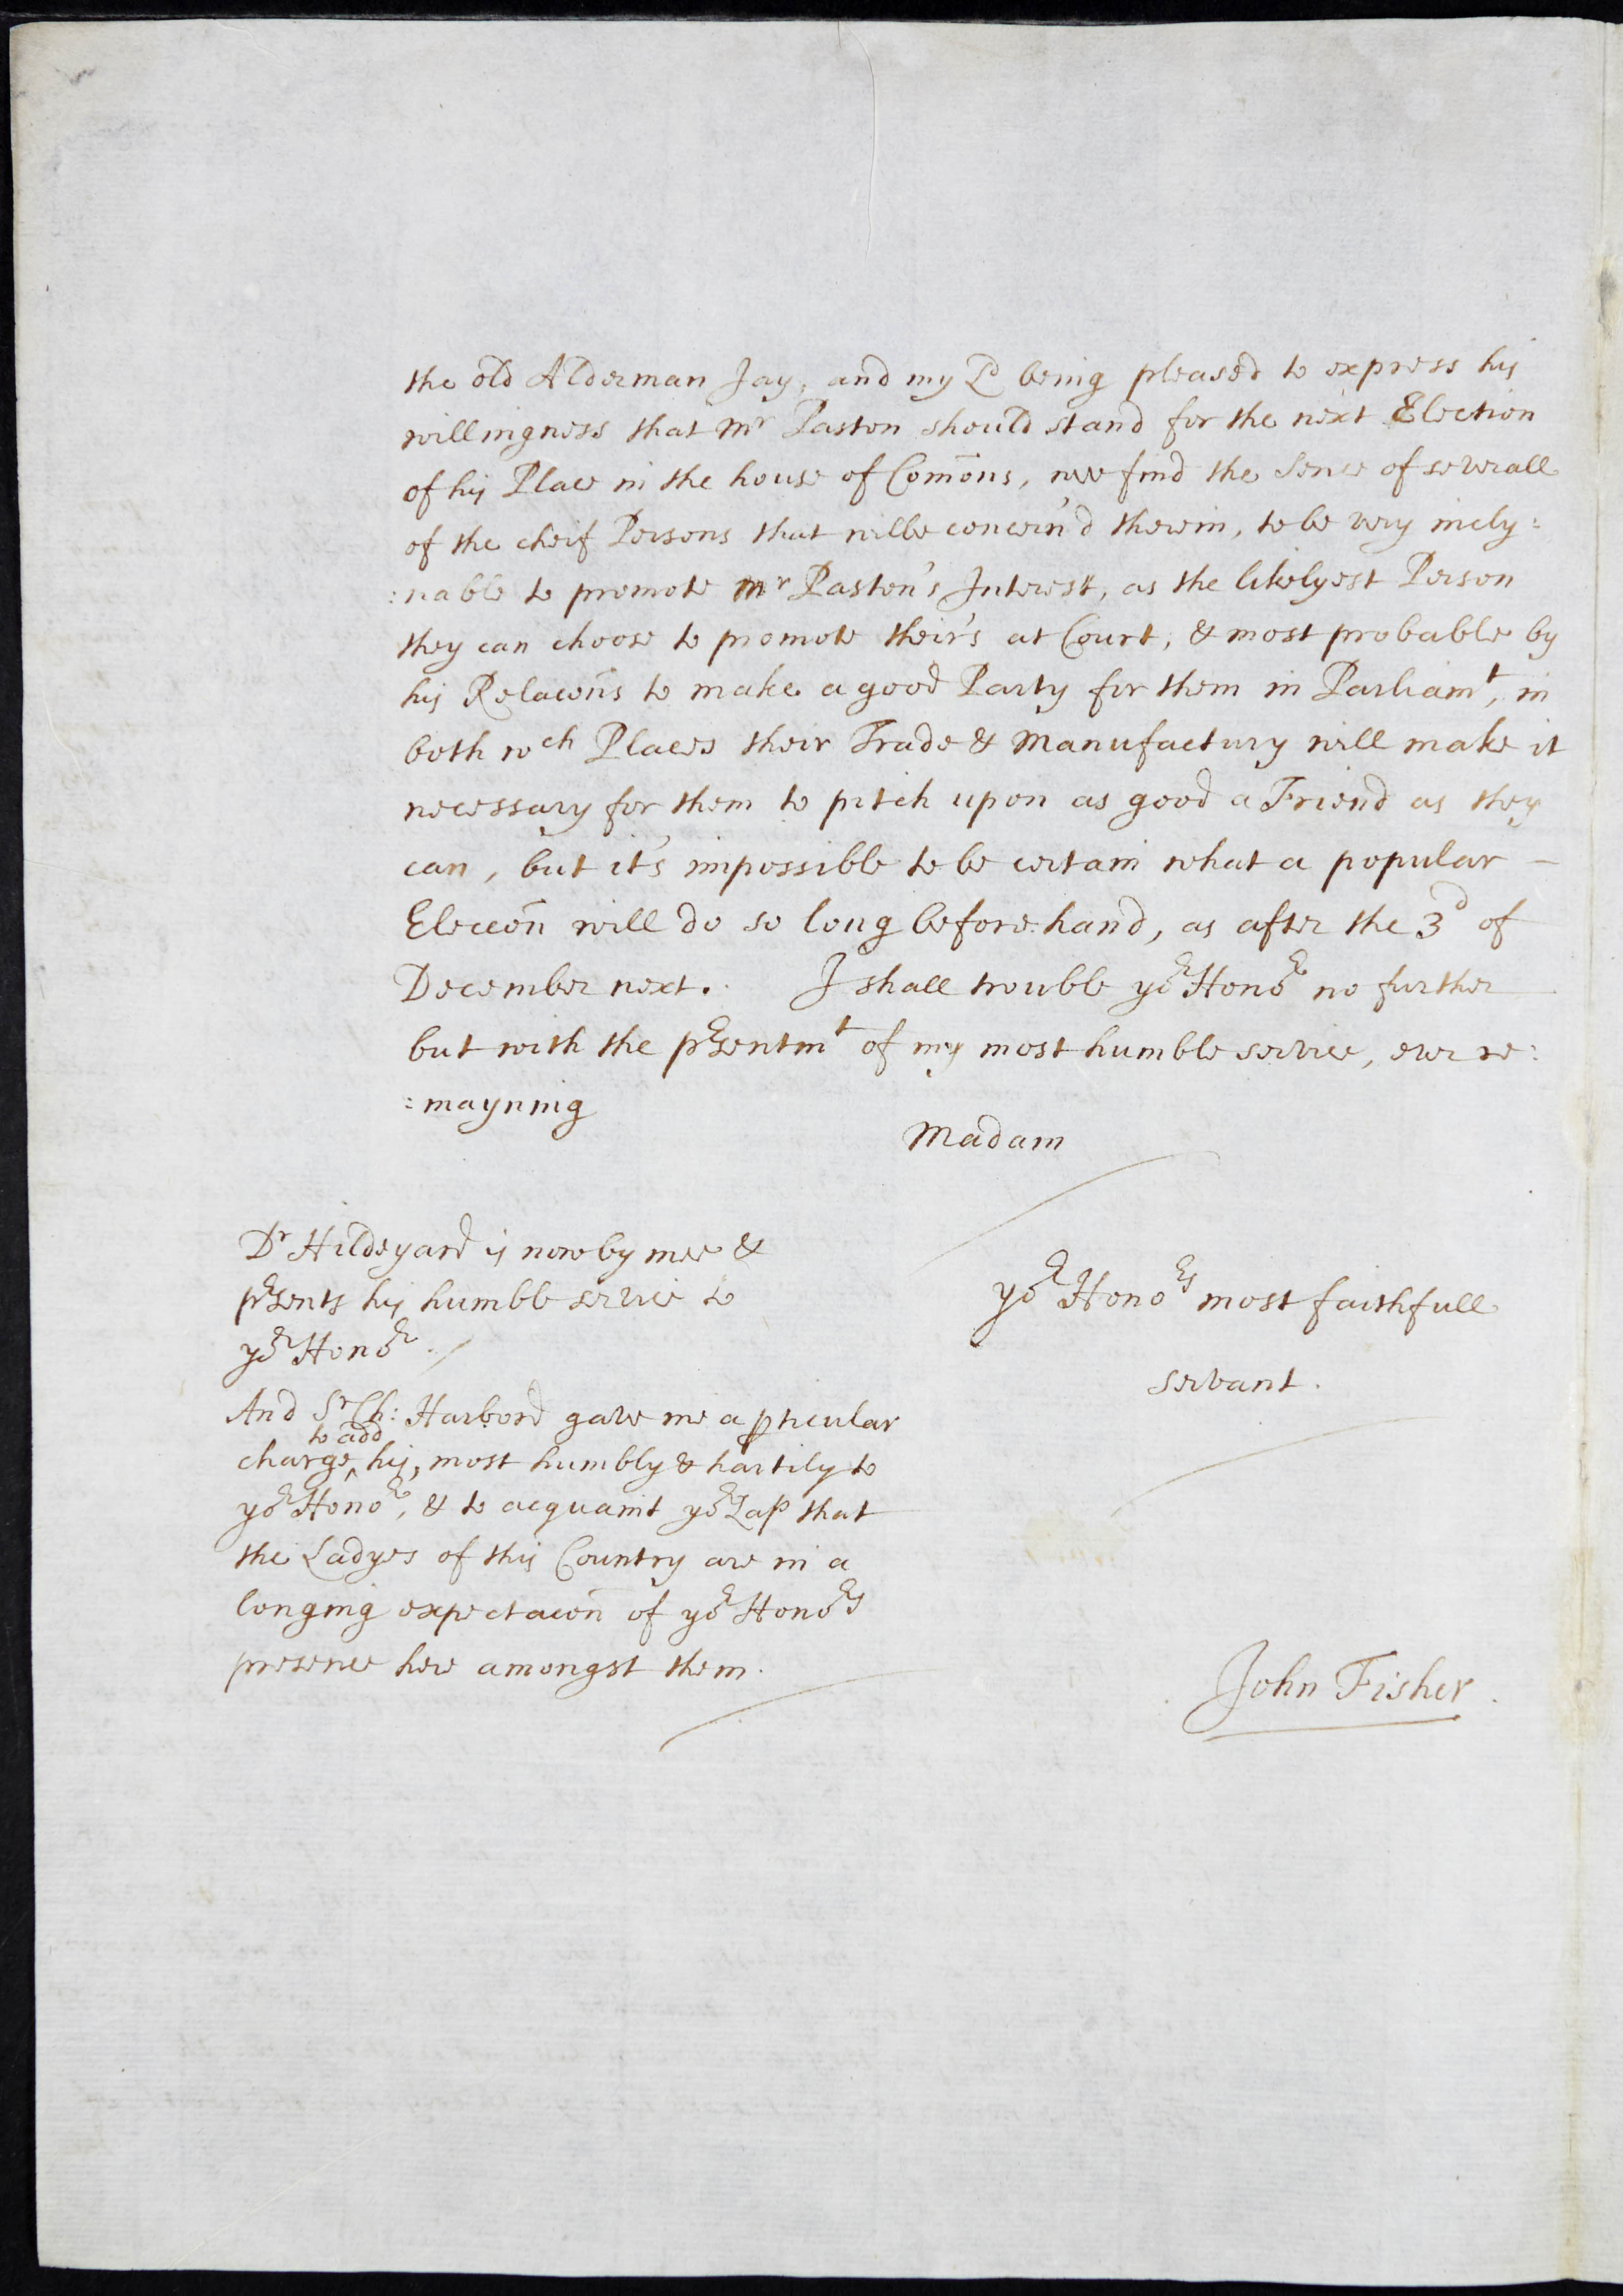 the old Alderman Jay, and my Ld being pleased to express his
willingness that Mr Paston should stand for the next Election
of his Place in the house of Com̄ons, wee find the Sence of severall
of the cheif Persons that wilbe concern'd therein, to be very incly:
:nable to promote Mr Paston's Interest, as the likelyest Person
they can choose to promote their's at Court, & most probable by
his Relacōns to make a good Party for them in Parliamt, in
both wch Places their Trade & Manufactury will make it
necessary for them to pitch upon as good a Friend as they
can, but it's impossible to be certain what a popular –
Eleccōn will do so long before-hand, as after the 3d of
December next. I shall trouble yor Honor no further
but with the presentmt of my most humble service, ever re:
:mayning
Madam
yor Honors most faithfull
servant.
John Fisher.
Dr Hildeyard is now by mee &
presents his humble service to
yor Honor.
And Sr Ch: Harbord gave me a pticular
charge ^to add his, most humbly & hartily to
yor Honor, & to acquaint yor Lap that
the Ladyes of this Country are in a
longing expectacōn of yor Honors
presence here amongst them.